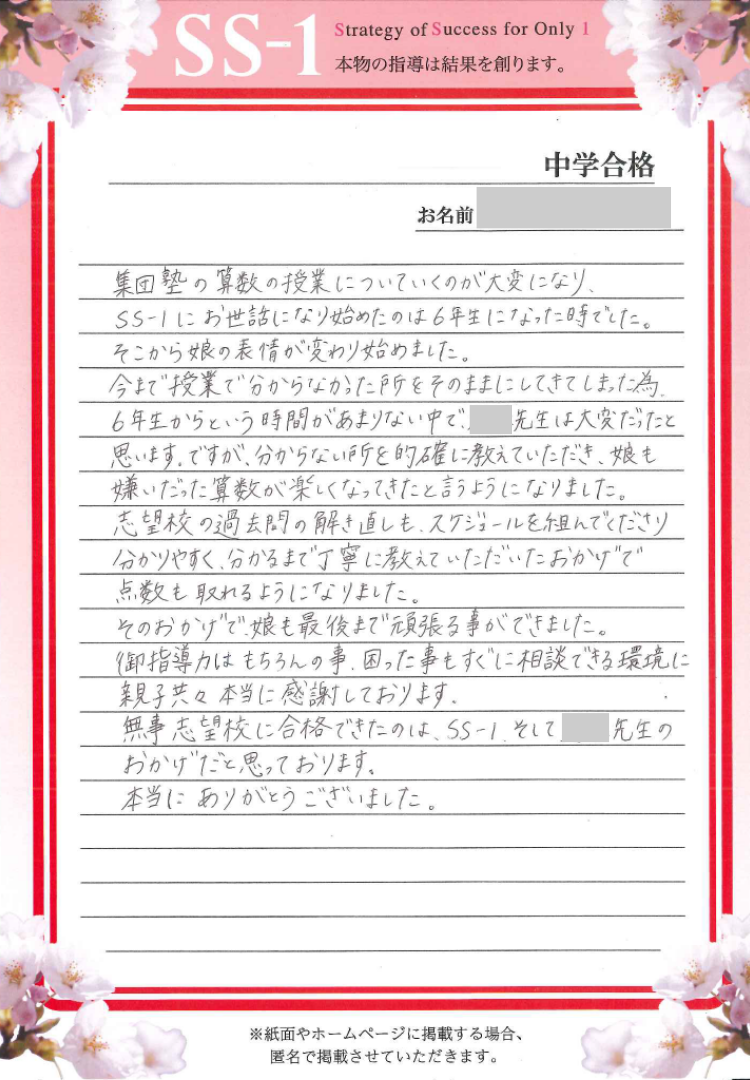 SS-1
Strategy of Success for Only 1
本物の指導は結果を創ります。
中学合格
お名前
集団塾の算数の授業についていくのが大変になり、
SS-1にお世話になり始めたのは6年生になった時でした。
そこから娘の表情が変わり始めました。
今まで授業で分からなかった所をそのままにしてきてしまった為、
6年生からという時間があまりない中で、先生は大変だったと
思います。ですが、分からない所を的確に教えていただき、娘も
嫌いだった算数が楽しくなってきたと言うようになりました。
志望校の過去問の解き直しも、スケジュールを組んでくださり
分かりやすく、分かるまで丁寧に教えていただいたおかげで
点数も取れるようになりました。
そのおかげで、娘も最後まで頑張る事ができました。
御指導力はもちろんの事、困った事もすぐに相談できる環境に
親子共々本当に感謝しております。
無事志望校に合格できたのは、SS-1、そして先生の
おかげだと思っております。
本当にありがとうございました。
※紙面やホームページに掲載する場合、
匿名で掲載させていただきます。